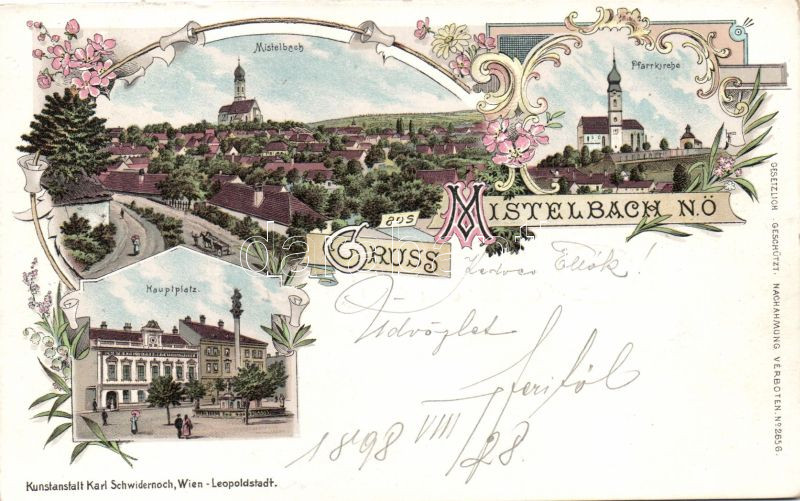 Mistelbach
Pfarrkirche
GRUSS aus MISTELBACH N.Ö
Hauptplatz.
Kedves Ellók!
Üdvözlet
Feritől
1898 VIII/28.
GESETZLICH GESCHÜTZT. NACHAHMUNG VERBOTEN. No 2656.
Kunstanstalt Karl Schwidernoch, Wien - Leopoldstadt.